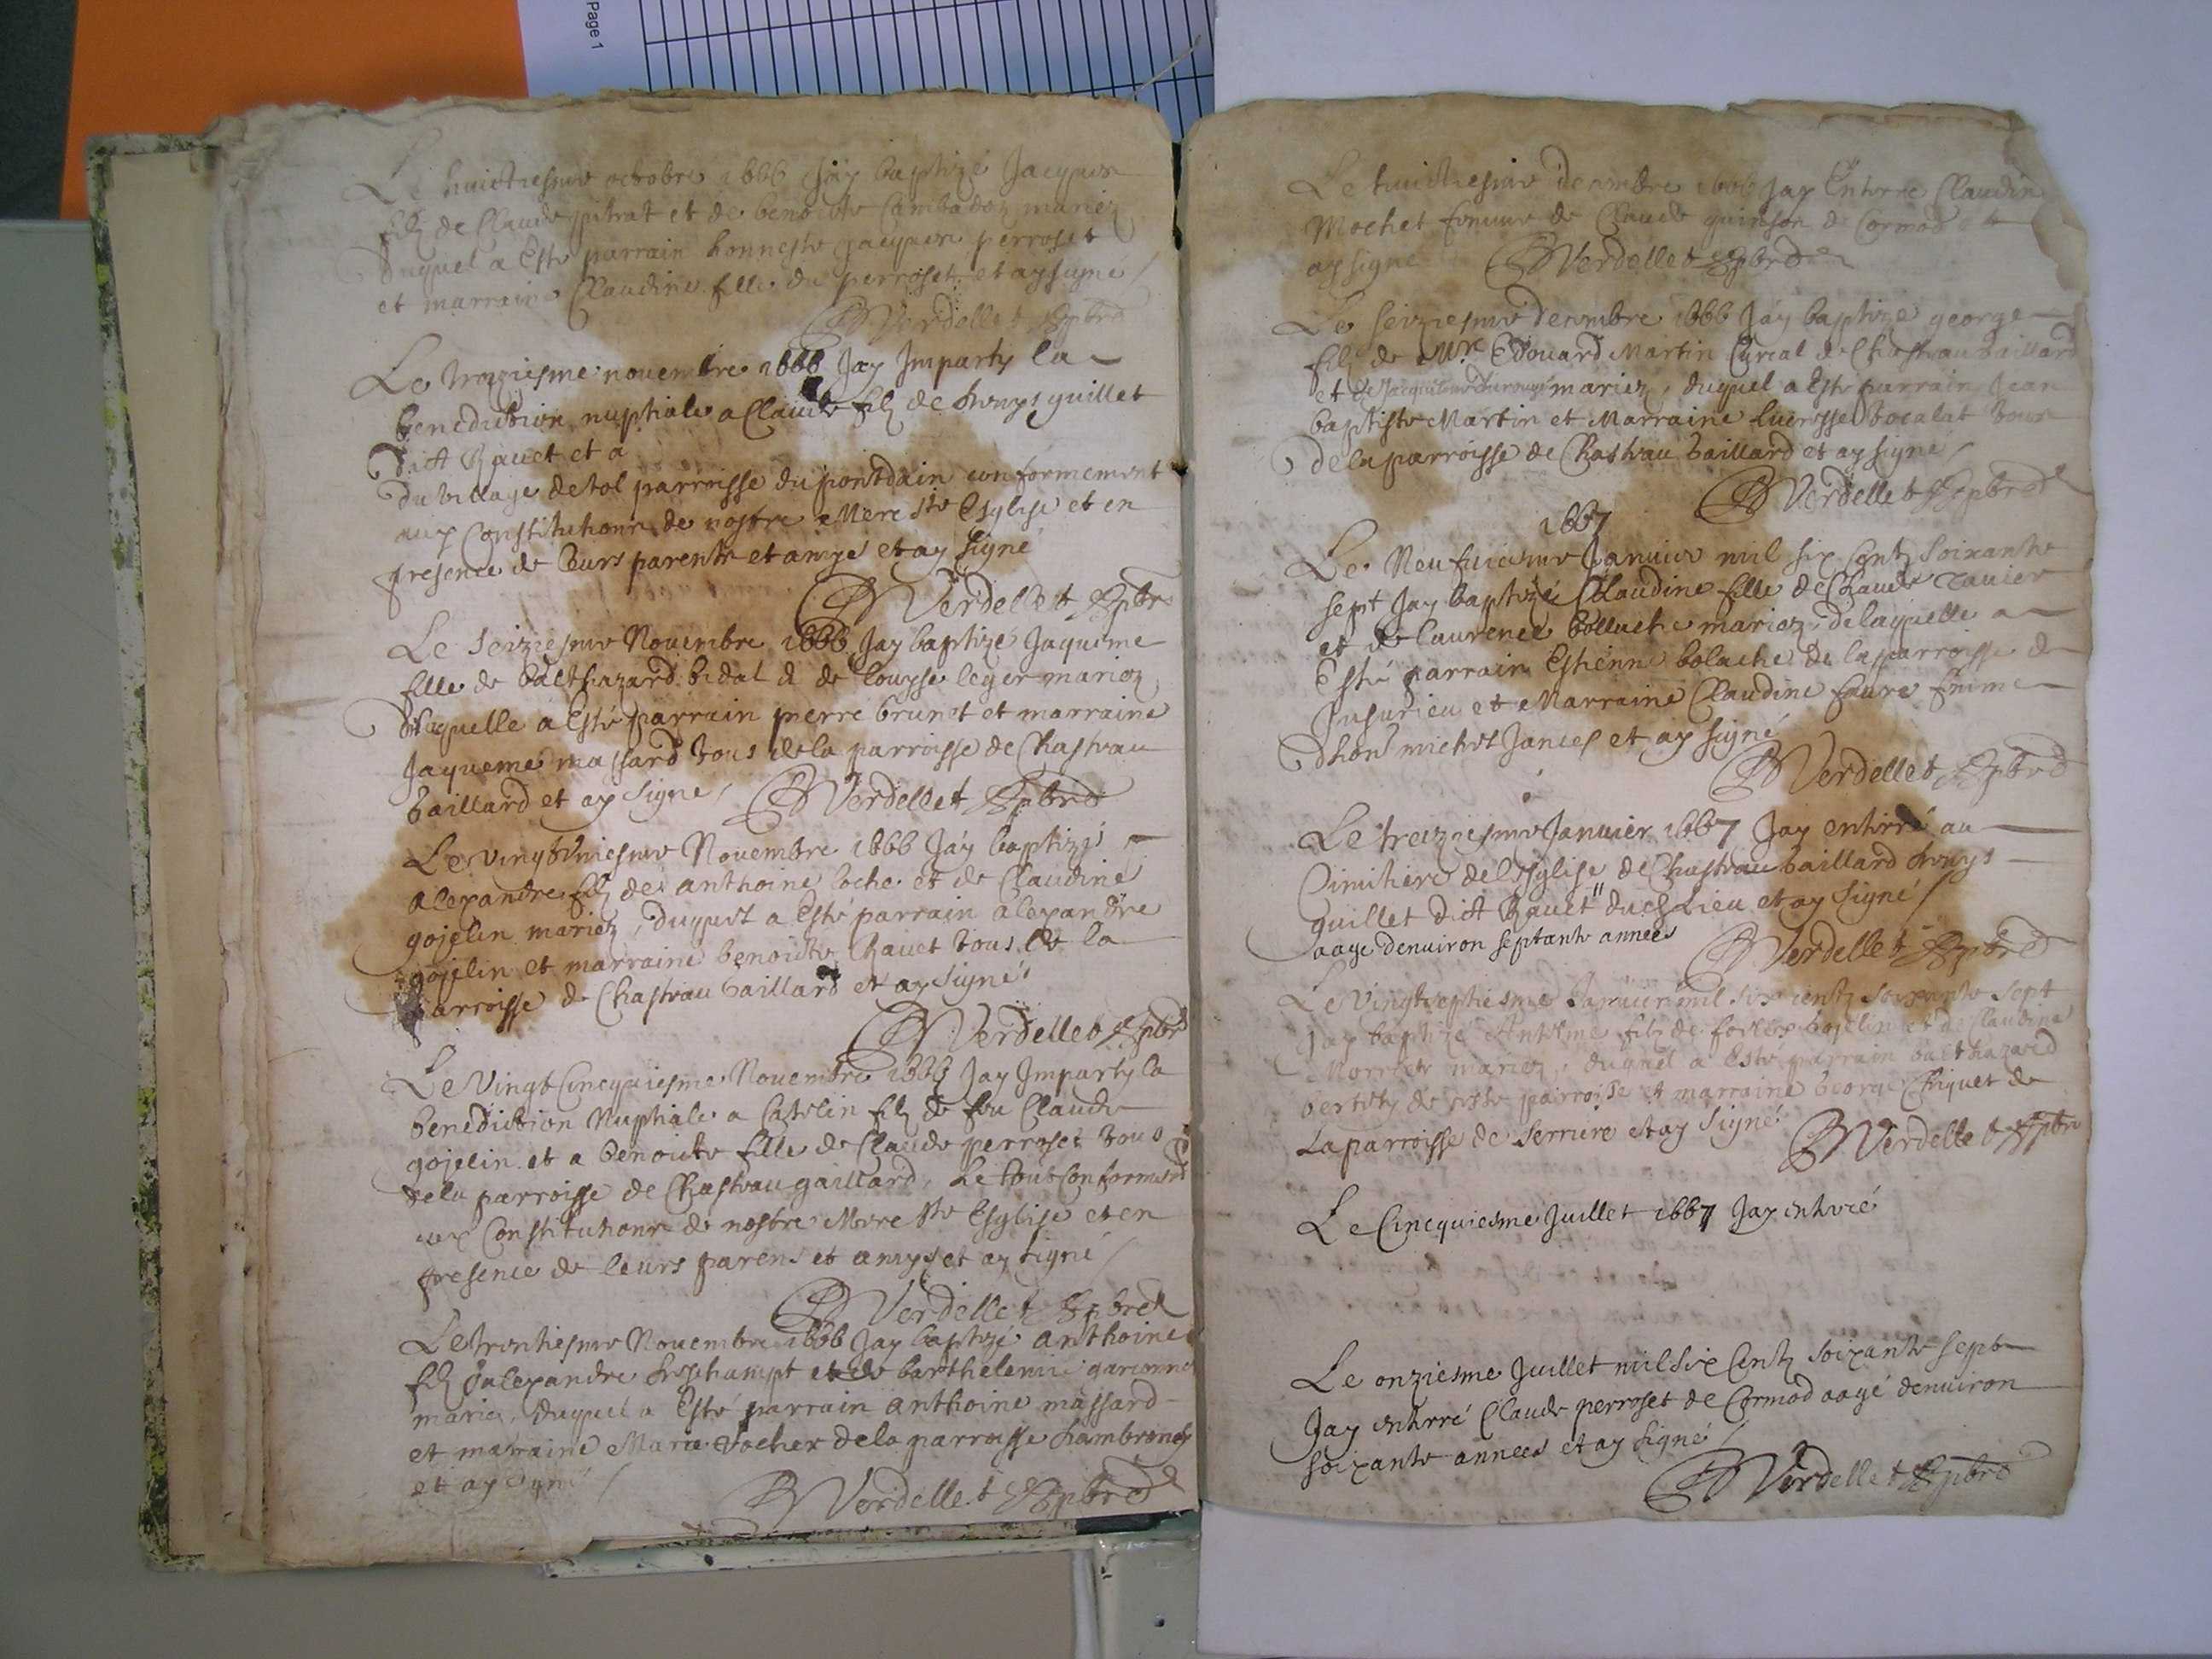 Page 1
Le huictiesme octobre 1666 Jay baptizé Jacques
filz de Claude pitrat et de benoiste mariez
duquel a Esté parrain honneste Jacques perroset
et marraine Claudine fille du perroset et ay signé /
Verdellet pbre
Le novembre 1666 Jay Imparty la
benediction nuptiale a Claude filz de guillet
dict Ravet et a
du village de tol parroisse du pontdain conformement
aux Constitutions de nostre Mere ste Esglise et en
presence de leurs parents et amys et ay signé
Verdellet pbre
Le seiziesme Novembre 1666 Jay baptizé Jaqueme
fille de balthazard bidal et de louyse leger mariez
de laquelle a Esté parrain pierre brunet et marraine
Jaqueme massard tous de la parroisse de Chasteau
Gaillard et ay signé / Verdellet pbre
Le vingt Novembre 1666 Jay baptizé
alexandre filz de anthoine loche et de Claudine
gojelin mariez, duquel a Esté parrain alexandre
gojelin et marraine benoiste Ravet tous de la
parroisse de Chasteau Gaillard et ay signé
Verdellet pbre
Le Vingt Cincquiesme Novembre 1666 Jay Imparty la
benediction Nuptiale a Catelin filz de feu Claude
gojelin et a benoiste fille de Claude perroset tous
de la parroisse de Chasteau gaillard, Le tout Conformement
aux Constitutions de nostre Mere ste Esglise et en
presence de leurs parens et amys et ay signé /
Verdellet pbre
Le trentiesme Novembre 1666 Jay baptizé anthoine
filz dalexandre et de barthelemie
mariez, duquel a Esté parrain anthoine massard
et marraine Marie vacher de la parroisse dambronay
et ay signé /
Verdellet pbre
Le huictiesme decembre 1666 Jay Enterré Claudine
Mochet femme de Claude quinson de Cormod et
ay signé Verdellet pbre
Le seiziesme decembre 1666 Jay baptizé george
filz de Mre Edouard Martin Curial de Chasteau Gaillard
et de mariez, duquel a Esté parrain Jean
baptiste Martin et Marraine Lucresse bocalat tous
de la parroisse de Chasteau Gaillard et ay signé /
Verdellet pbre
1667
Le Neufviesme Janvier mil six Centz soixante
sept Jay baptizé Claudine fille de Claude
et de laurence bollache mariez, de laquelle a
Esté parrain Estienne bolache de la parroisse de
Jusurieu et Marraine Claudine faure femme
dhon michel Jances et ay signé
Verdellet pbre
Le treiziesme Janvier 1667 Jay enterré au
Cimitiere de lesglise de Chasteau Gaillard
guillet dict Ravet du Lieu et ay signé /
aage denviron septante annees
Verdellet pbre
Le Vingtseptiesme Janvier mil six centz soixante sept
Jay baptizé Anthelme filz de gojelin et de Claudine
mariez, duquel a Esté parrain balthazard
de ceste parroisse et marraine George Chiquet de
La parroisse de Serriere et ay signé
Verdellet pbre
Le Cincquiesme Juillet 1667 Jay enterré
Le onziesme Juillet mil six Centz soixante sept
Jay enterré Claude perroset de Cormod aagé denviron
soixante annees et ay signé /
Verdellet pbre